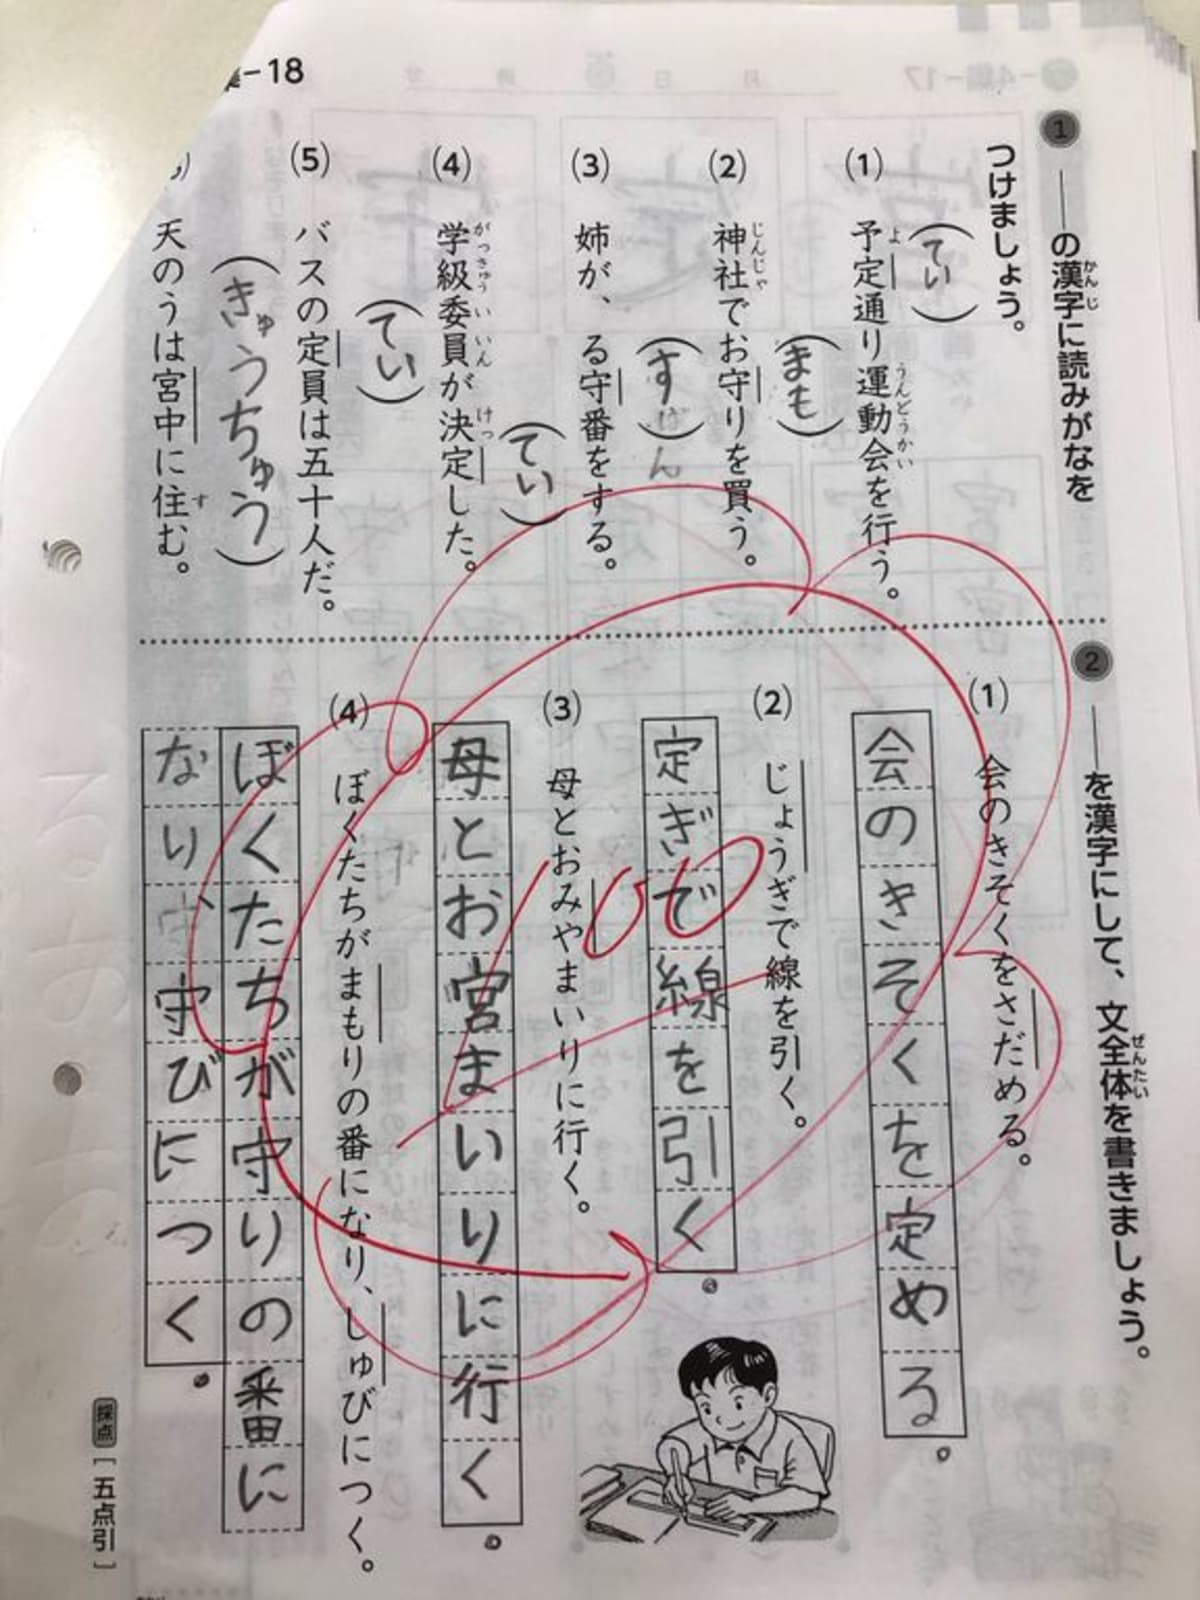 -18
1 ──の漢字に読みがなを
かんじ
つけましょう。
(1) 予定通り運動会を行う。
よ うんどうかい
(てい)
(2) 神社でお守りを買う。
じんじゃ
(まも)
(3) 姉が、る守番をする。
(すばん)
(4) 学級委員が決定した。
がっきゅう いいん けっ
(てい)
(5) バスの定員は五十人だ。
(てい)
天のうは宮中に住む。
す
(きゅうちゅう)
2 ──を漢字にして、文全体を書きましょう。
ぜんたい
(1) 会のきそくをさだめる。
会のきそくを定める。
(2) じょうぎで線を引く。
定ぎで線を引く。
(3) 母とおみやまいりに行く。
母とお宮まいりに行く。
(4) ぼくたちがまもりの番になり、しゅびにつく。
ぼくたちが守りの番に
なり、守びにつく。
100
採点[五点引]